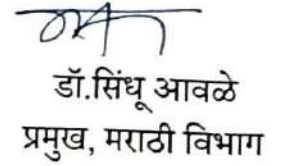 डॉ.सिंधू आवळे
प्रमुख, मराठी विभाग